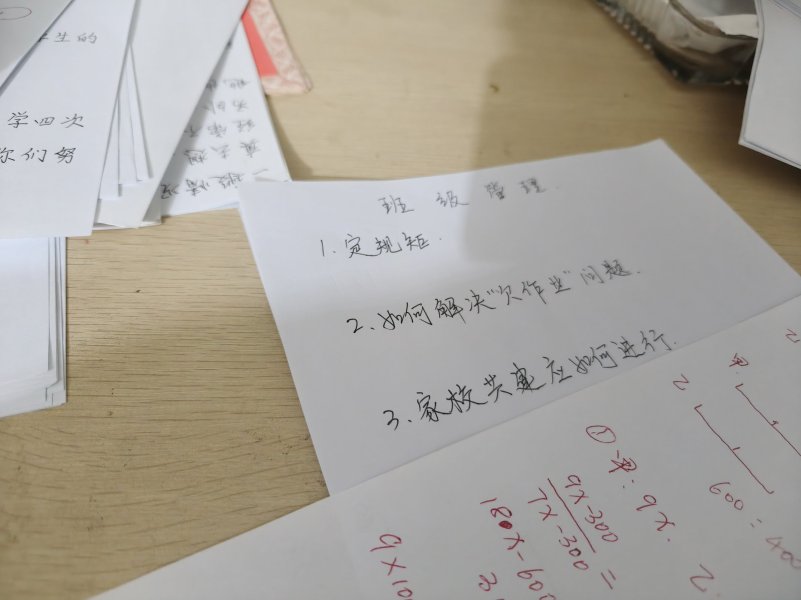 学生的
学四次
你们努
班级管理.
1.定规矩.
2.如何解决"欠作业"问题.
3.家校共建应如何进行.
乙
甲
乙
600=400
① 甲:9x.
乙
9x-300
7x-300
=
180x-600
9x10